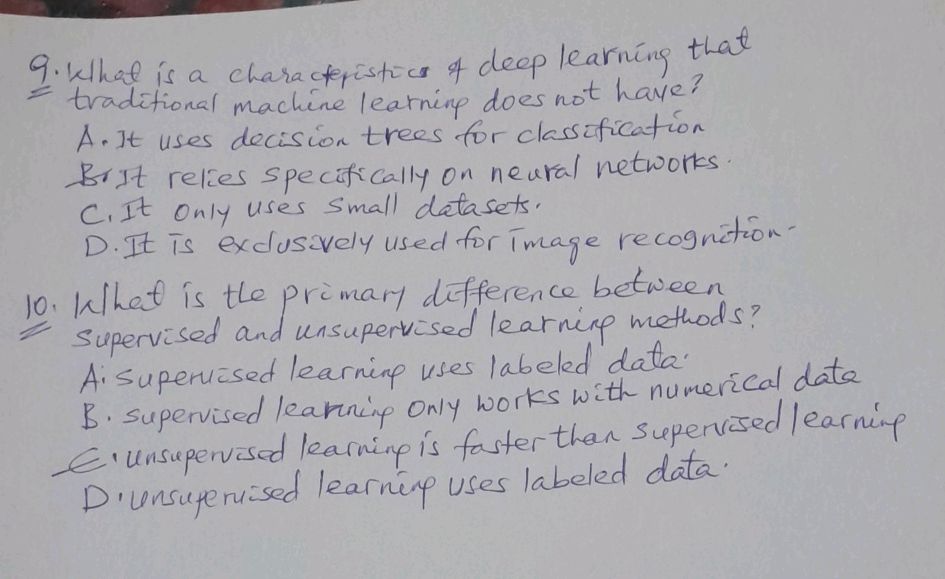 9. What is a characteristics of deep learning that
traditional machine learning does not have?
A. It uses decision trees for classification
B. It relies specifically on neural networks.
C. It only uses small datasets.
D. It is exclusively used for image recognition.
10. What is the primary difference between
supervised and unsupervised learning methods?
A. Supervised learning uses labeled data.
B. supervised learning only works with numerical data
C. unsupervised learning is faster than supervised learning
D. unsupervised learning uses labeled data.